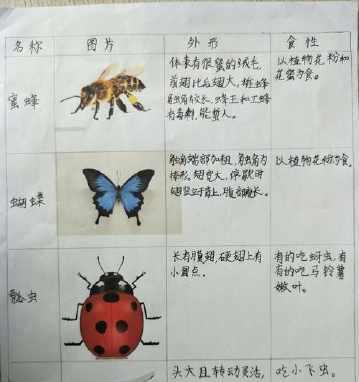 名称 图片 外形 食性
蜜蜂
体表有很密的绒毛
前翅比后翅大，雄蜂
触角较长，蜂王和工蜂
有毒刺，能蜇人。
以植物花粉和
花蜜为食。
蝴蝶
触角端部加粗，触角为
棒形，翅宽大，停歇时
翅竖立于背上，腹部瘦长。
以植物花粉为食。
瓢虫
长有膜翅，硬翅上有
小圆点。
有的吃蚜虫，有
有的吃马铃薯
嫩叶。
头大且转动灵活，
吃小飞虫。